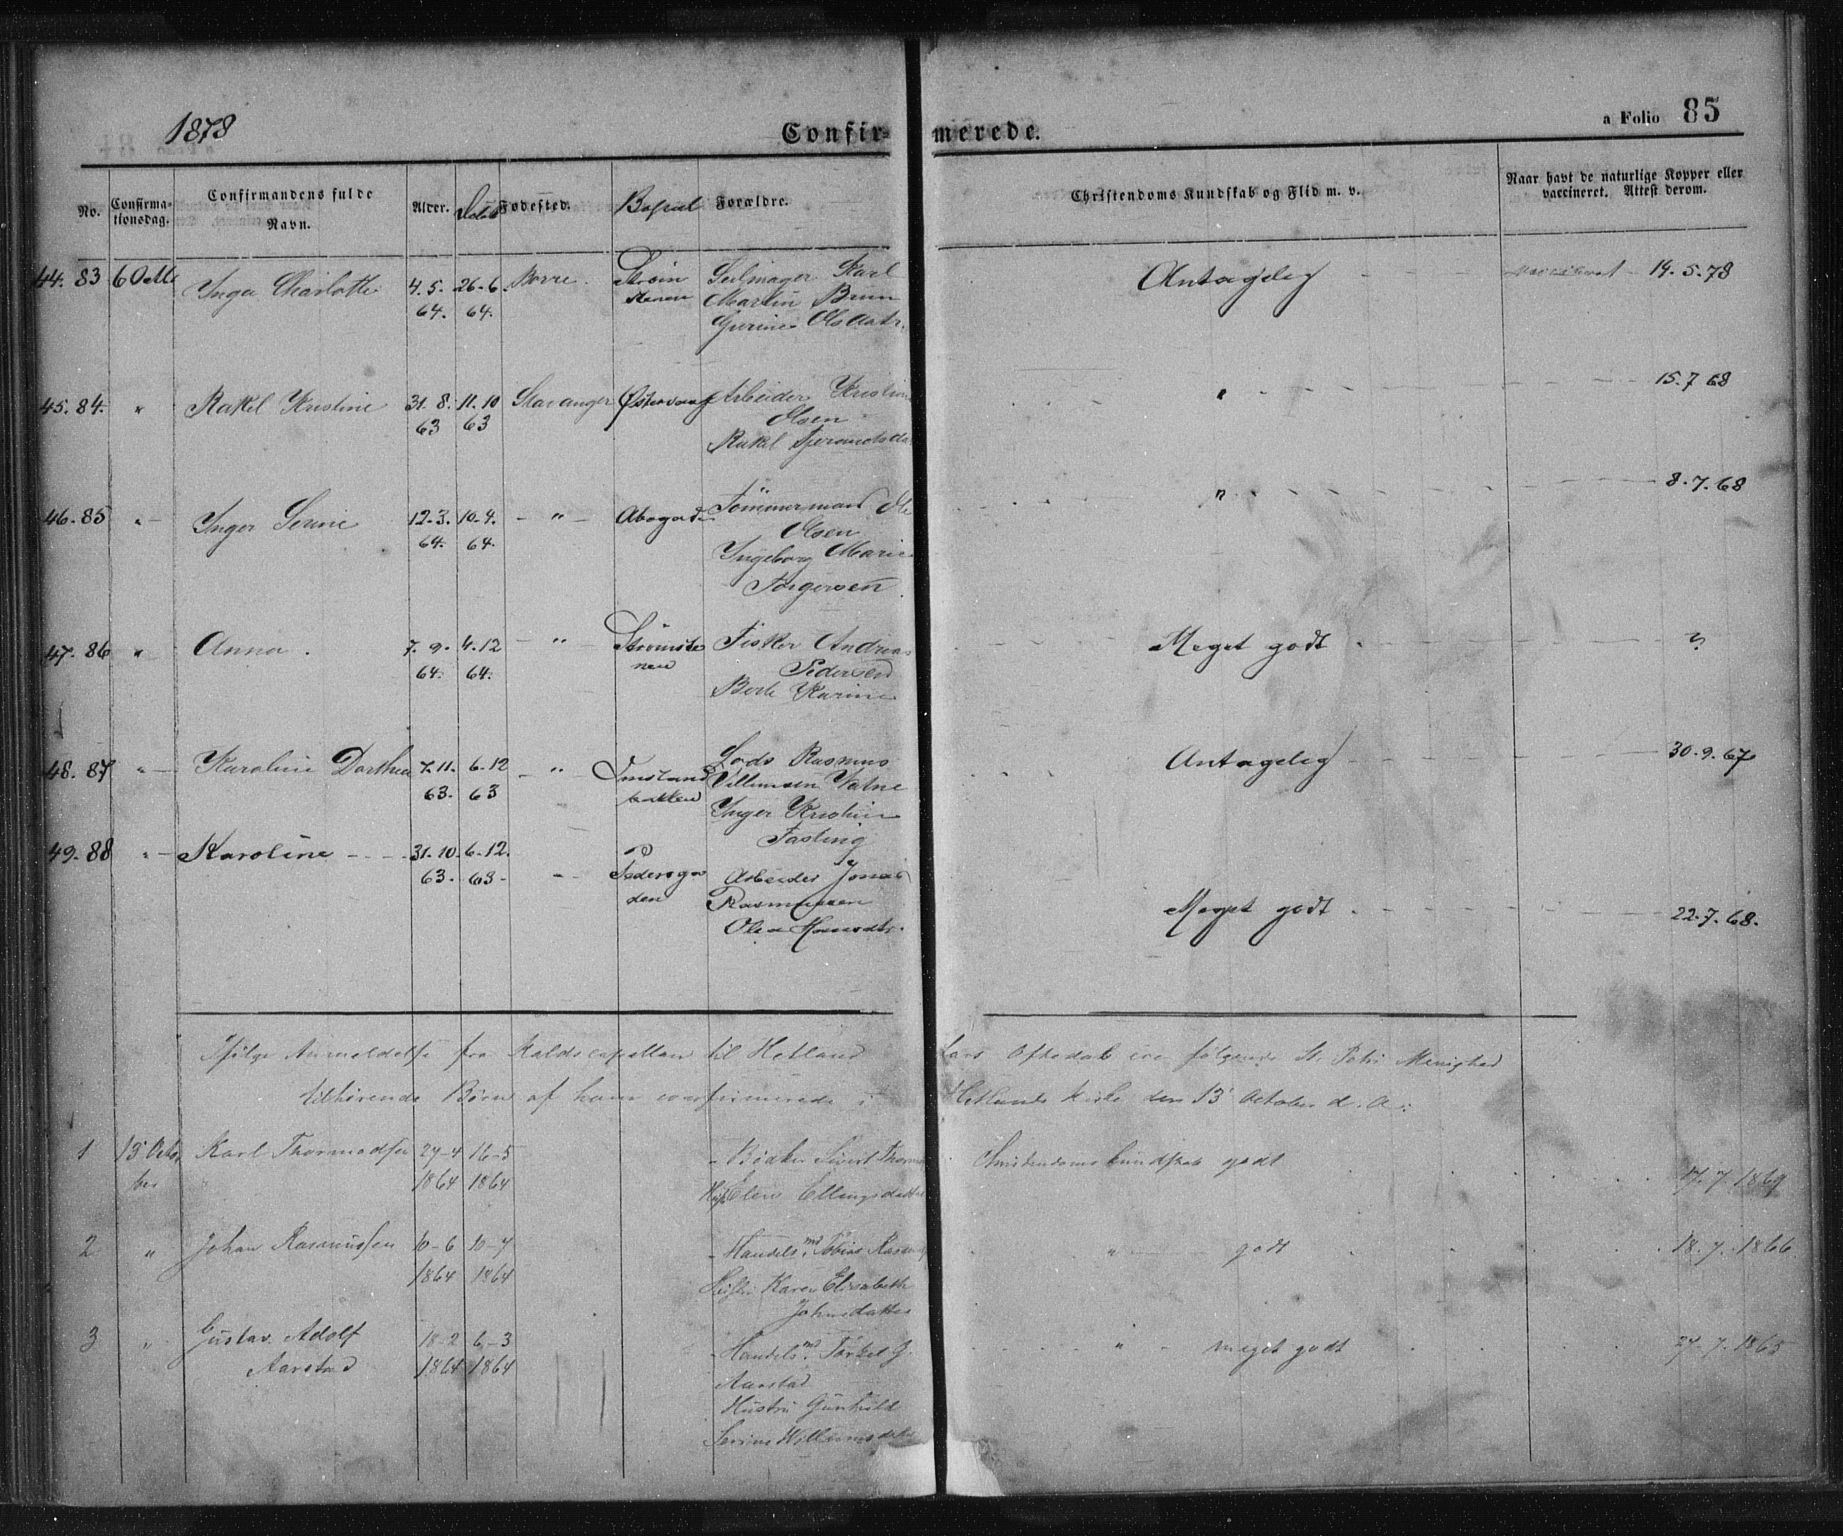 1878
Confirmerede.
a Folio 85
No.
Confirmationsdag.
Confirmandens fulde Navn.
Alder.
Døbt
Fødested.
Bopæl
Forældre.
Christendoms Kundskab og Flid m. v.
Naar havt de naturlige Kopper eller vaccineret. Attest derom.
44. 83 6 Octbr Inga Charlotte 4.5. 26-6. Borre. Strøm Seilmager Karl Antagelig vaccineret 14-5.78
64. 64. stenen Martin Brun
Gurine Olsdatr.
45. 84. " Rakel Kristine 31.8. 11.10 Stavanger Østervaag Arbeider Kristian " 15.7 68
63 63 Olsen
Rakel
46. 85 " Inger Serine 12-3. 10-4. " Tömmermand Ole " 8.7.68
64. 64. Olsen
Ingeborg Marie
Torgersen
47. 86 " Anna. 7.9. 4.12 " Strømste Fisker Andreas Meget godt ?
64. 64. nen Pedersen
Berte Karine
48. 87 " Karoline Dorthea 7.11. 6.12 " Lods Rasmus Antagelig 30.9.67
63. 63 bakken Villumsen Vatne
Inger Kristine
Fasting
49. 88 " Karoline 31.10. 6.12. Pedersga Arbeider Jonas Meget godt 22.7.68.
63. 63. " den Rasmussen
Olea Hansdtr.
Ifølge Anmeldelse fra Kaldscapellan til Hetland Lars Oftedal ere følgende St. Petri Menighed
tilhørende Børn af ham confirmerede i Hetlands Kirke den 13 October d. A:
1 13 Octo Karl Thormodsen 27-4 16-5 Bødker Sivert Christendomskundskab godt 17.7.1869
ber 1864 1864 Elen Ellingsdatter
2 " Johan Rasmussen 10-6 10-7 Handelsmd. Tobias " godt 18.7.1866
1864 1864 Hustru Karen Elisabeth
Johnsdatter
3 " Gustav Adolf 18-2 6-3 Handelsmd. Torkel G. " meget godt 24.7.1865
Aarstad 1864 1864 Aarstad
Hustru Gunhild
Serine